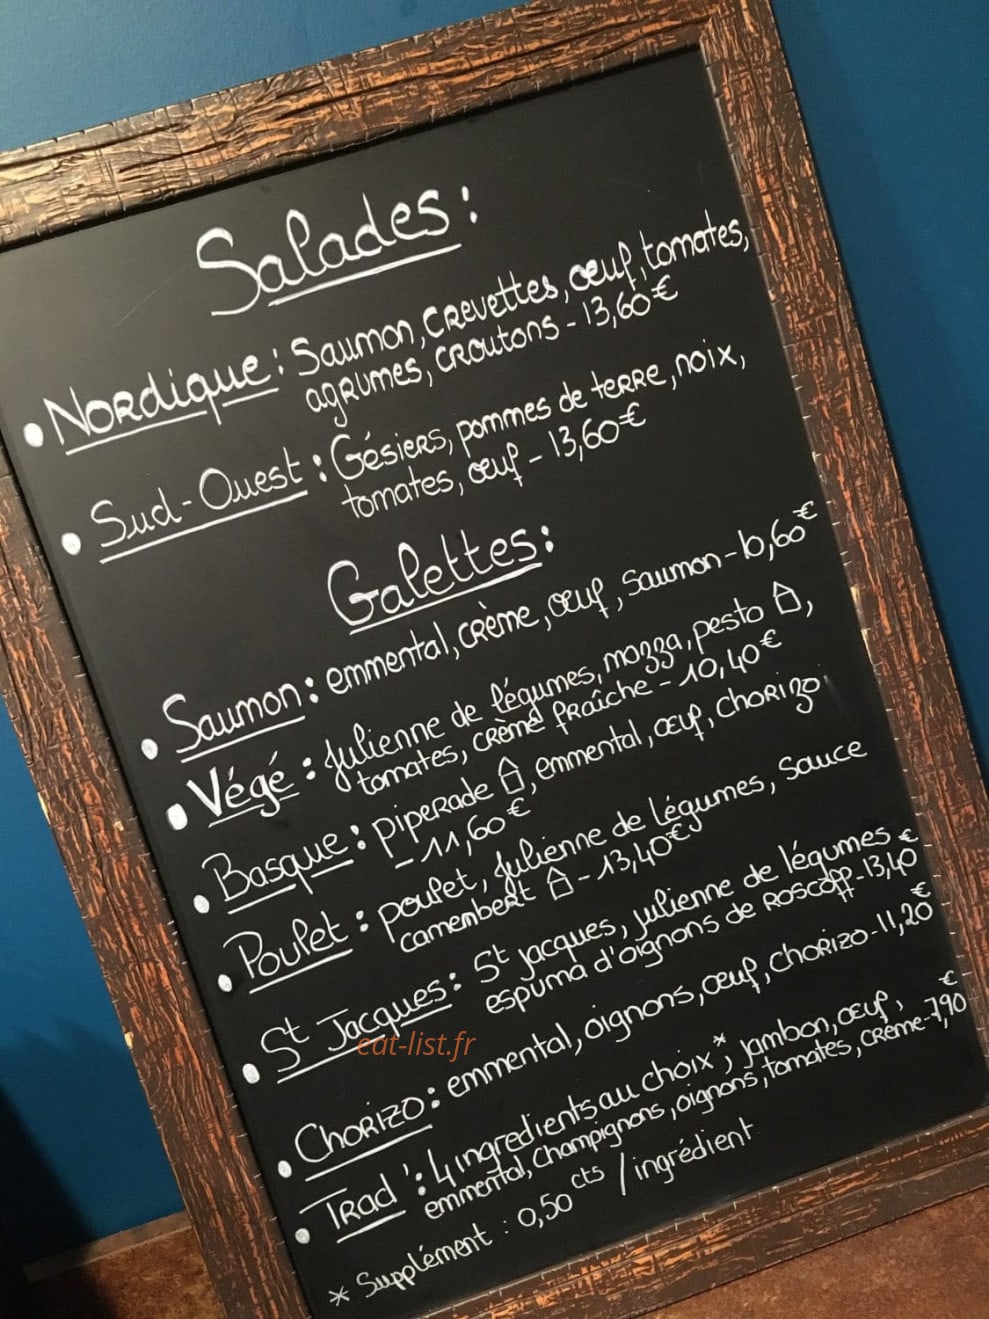 Salades :
• Nordique : Saumon, crevettes, œuf, tomates,
agrumes, croutons - 13,60€
• Sud-Ouest : Gésiers, pommes de terre, noix,
tomates, œuf - 13,60€
Galettes :
• Saumon : emmental, crème, œuf, saumon - 10,60€
• Végé : Julienne de légumes, mozza, pesto ⌂,
tomates, crème fraîche - 10,40€
• Basque : piperade ⌂, emmental, œuf, chorizo
- 11,60€
• Poulet : poulet, julienne de légumes, sauce
camembert ⌂ - 13,40€
• St Jacques : St Jacques, julienne de légumes
espuma d'oignons de Roscoff - 13,40€
eat-list.fr
• Chorizo : emmental, oignons, œuf, chorizo - 11,20€
• Trad' : 4 ingredients au choix* ; jambon, œuf,
emmental, champignons, oignons, tomates, crème - 7,90€
* Supplément : 0,50cts / ingrédient